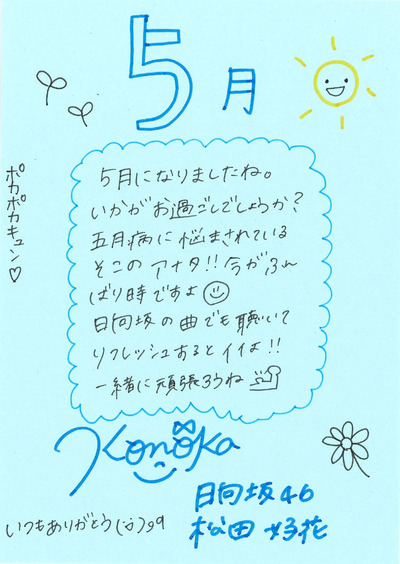 5月
ポカポカキュン♡
5月になりましたね。
いかがお過ごしでしょうか?
五月病に悩まされている
そこのアナタ!!今がふん
ばり時ですよ☺
日向坂の曲でも聴いて
リフレッシュするとイイよ!!
一緒に頑張ろうね
Konoka
日向坂46
松田好花
いつもありがとう